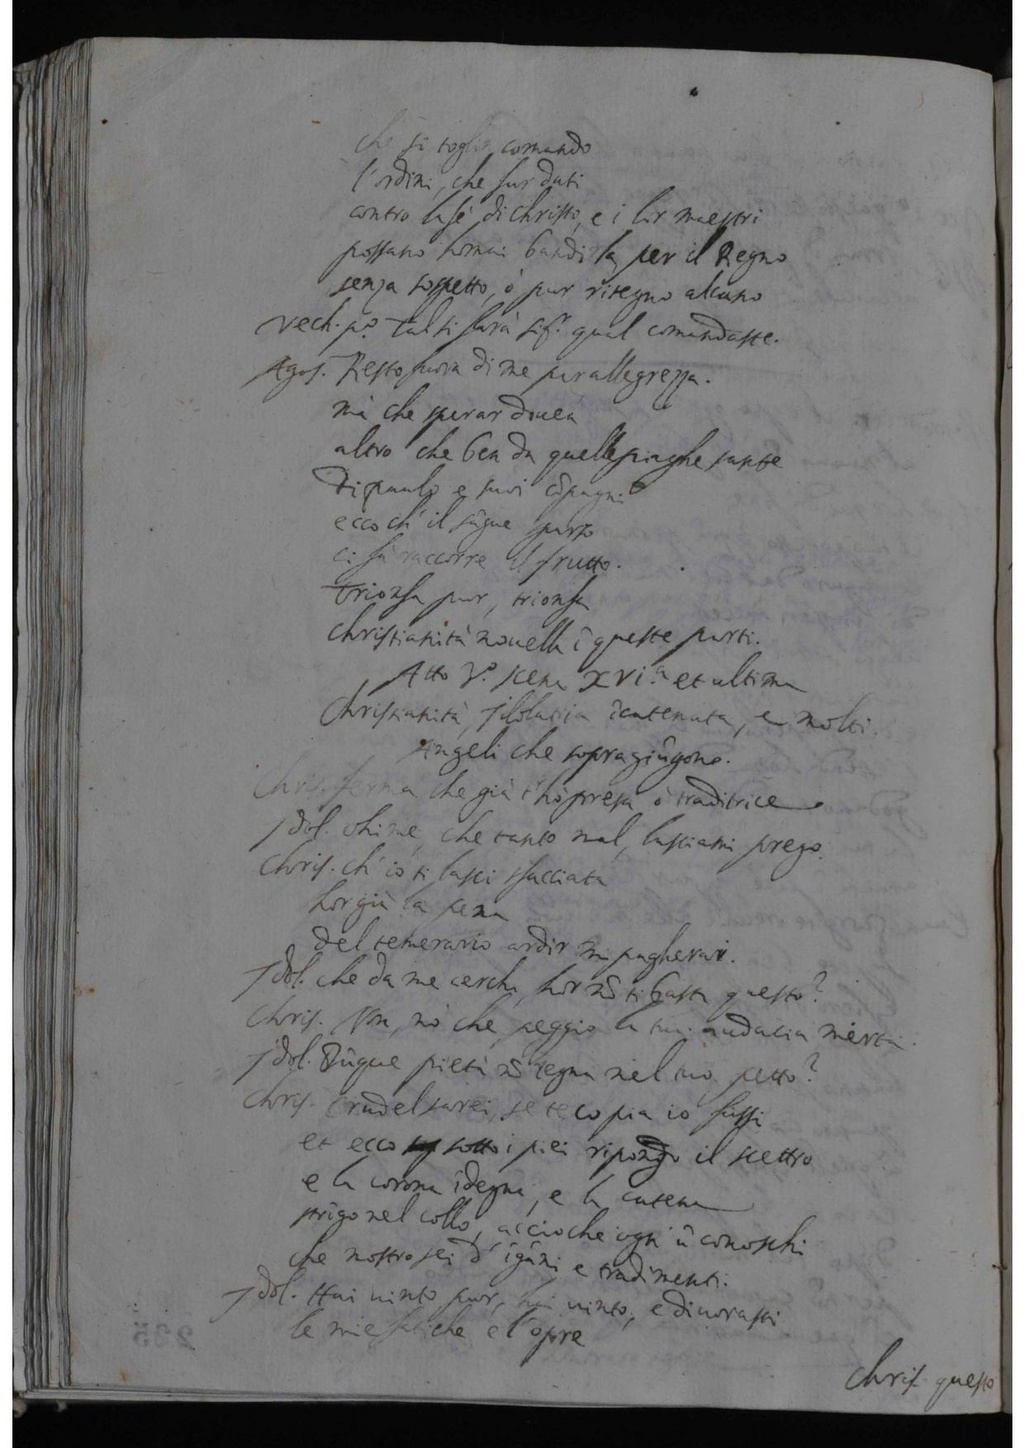 che si toglia, comando
l'ordini, che fur dati
contro la fé di Christo, e i lor maestri
possano homai bandirla per il Regno
senza sospetto, ò pur ritegno alcuno
Vech. pº. Tal si farà sigr. qual comandaste.
Agos. Resto fuora di me per allegrezza.
mà che sperar douea
altro che ben da quelle piaghe sante
di paulo e suoi cõpagni
ecco ch'il sãgue sparso
ci fà raccorre il frutto.
trionfa pur, trionfa
christianità nouella ĩ queste parti.
Atto Vº. scena XVI.a et ultima
Christianità, jdolatria ĩcatenata, e molti.
Angeli che sopragiũgono.
Chris. ferma che già t'hò presa ò traditrice
jdol. Ohime, che tanto mal, lasciami prego.
Chris. ch'io ti lasci sfacciata
hor già la pena
del temerario ardir mi pagherai.
jdol. che da me cerchi, hor nõ ti basta questo?
Chris. Non, nò che peggio la tua audacia merta.
jdol. Dũque pietà nõ regna nel tuo petto?
Chris. Crudel sarei, se teco pia io fussi
et ecco sotto i piei ripongo il scettro
e la corona ĩdegna, e la catena
strĩgo nel collo, accioche ogn'ũ conoschi
che mostro sei d'ĩgãni e tradimenti.
jdol. Hai uinto pur, hai uinto, e diuorasti
le mie fatiche e l'opre
Chris. questo